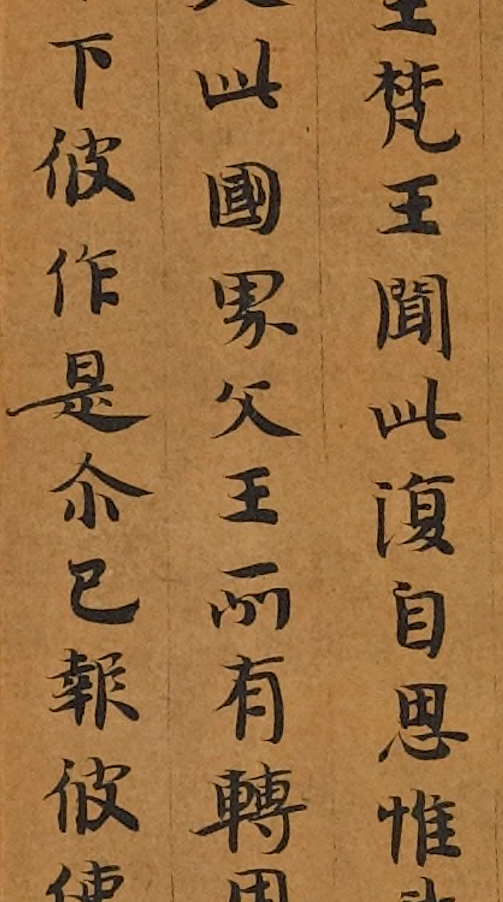 王梵王聞此復自思惟
此國界父王所有轉
下彼作是尒已報彼使